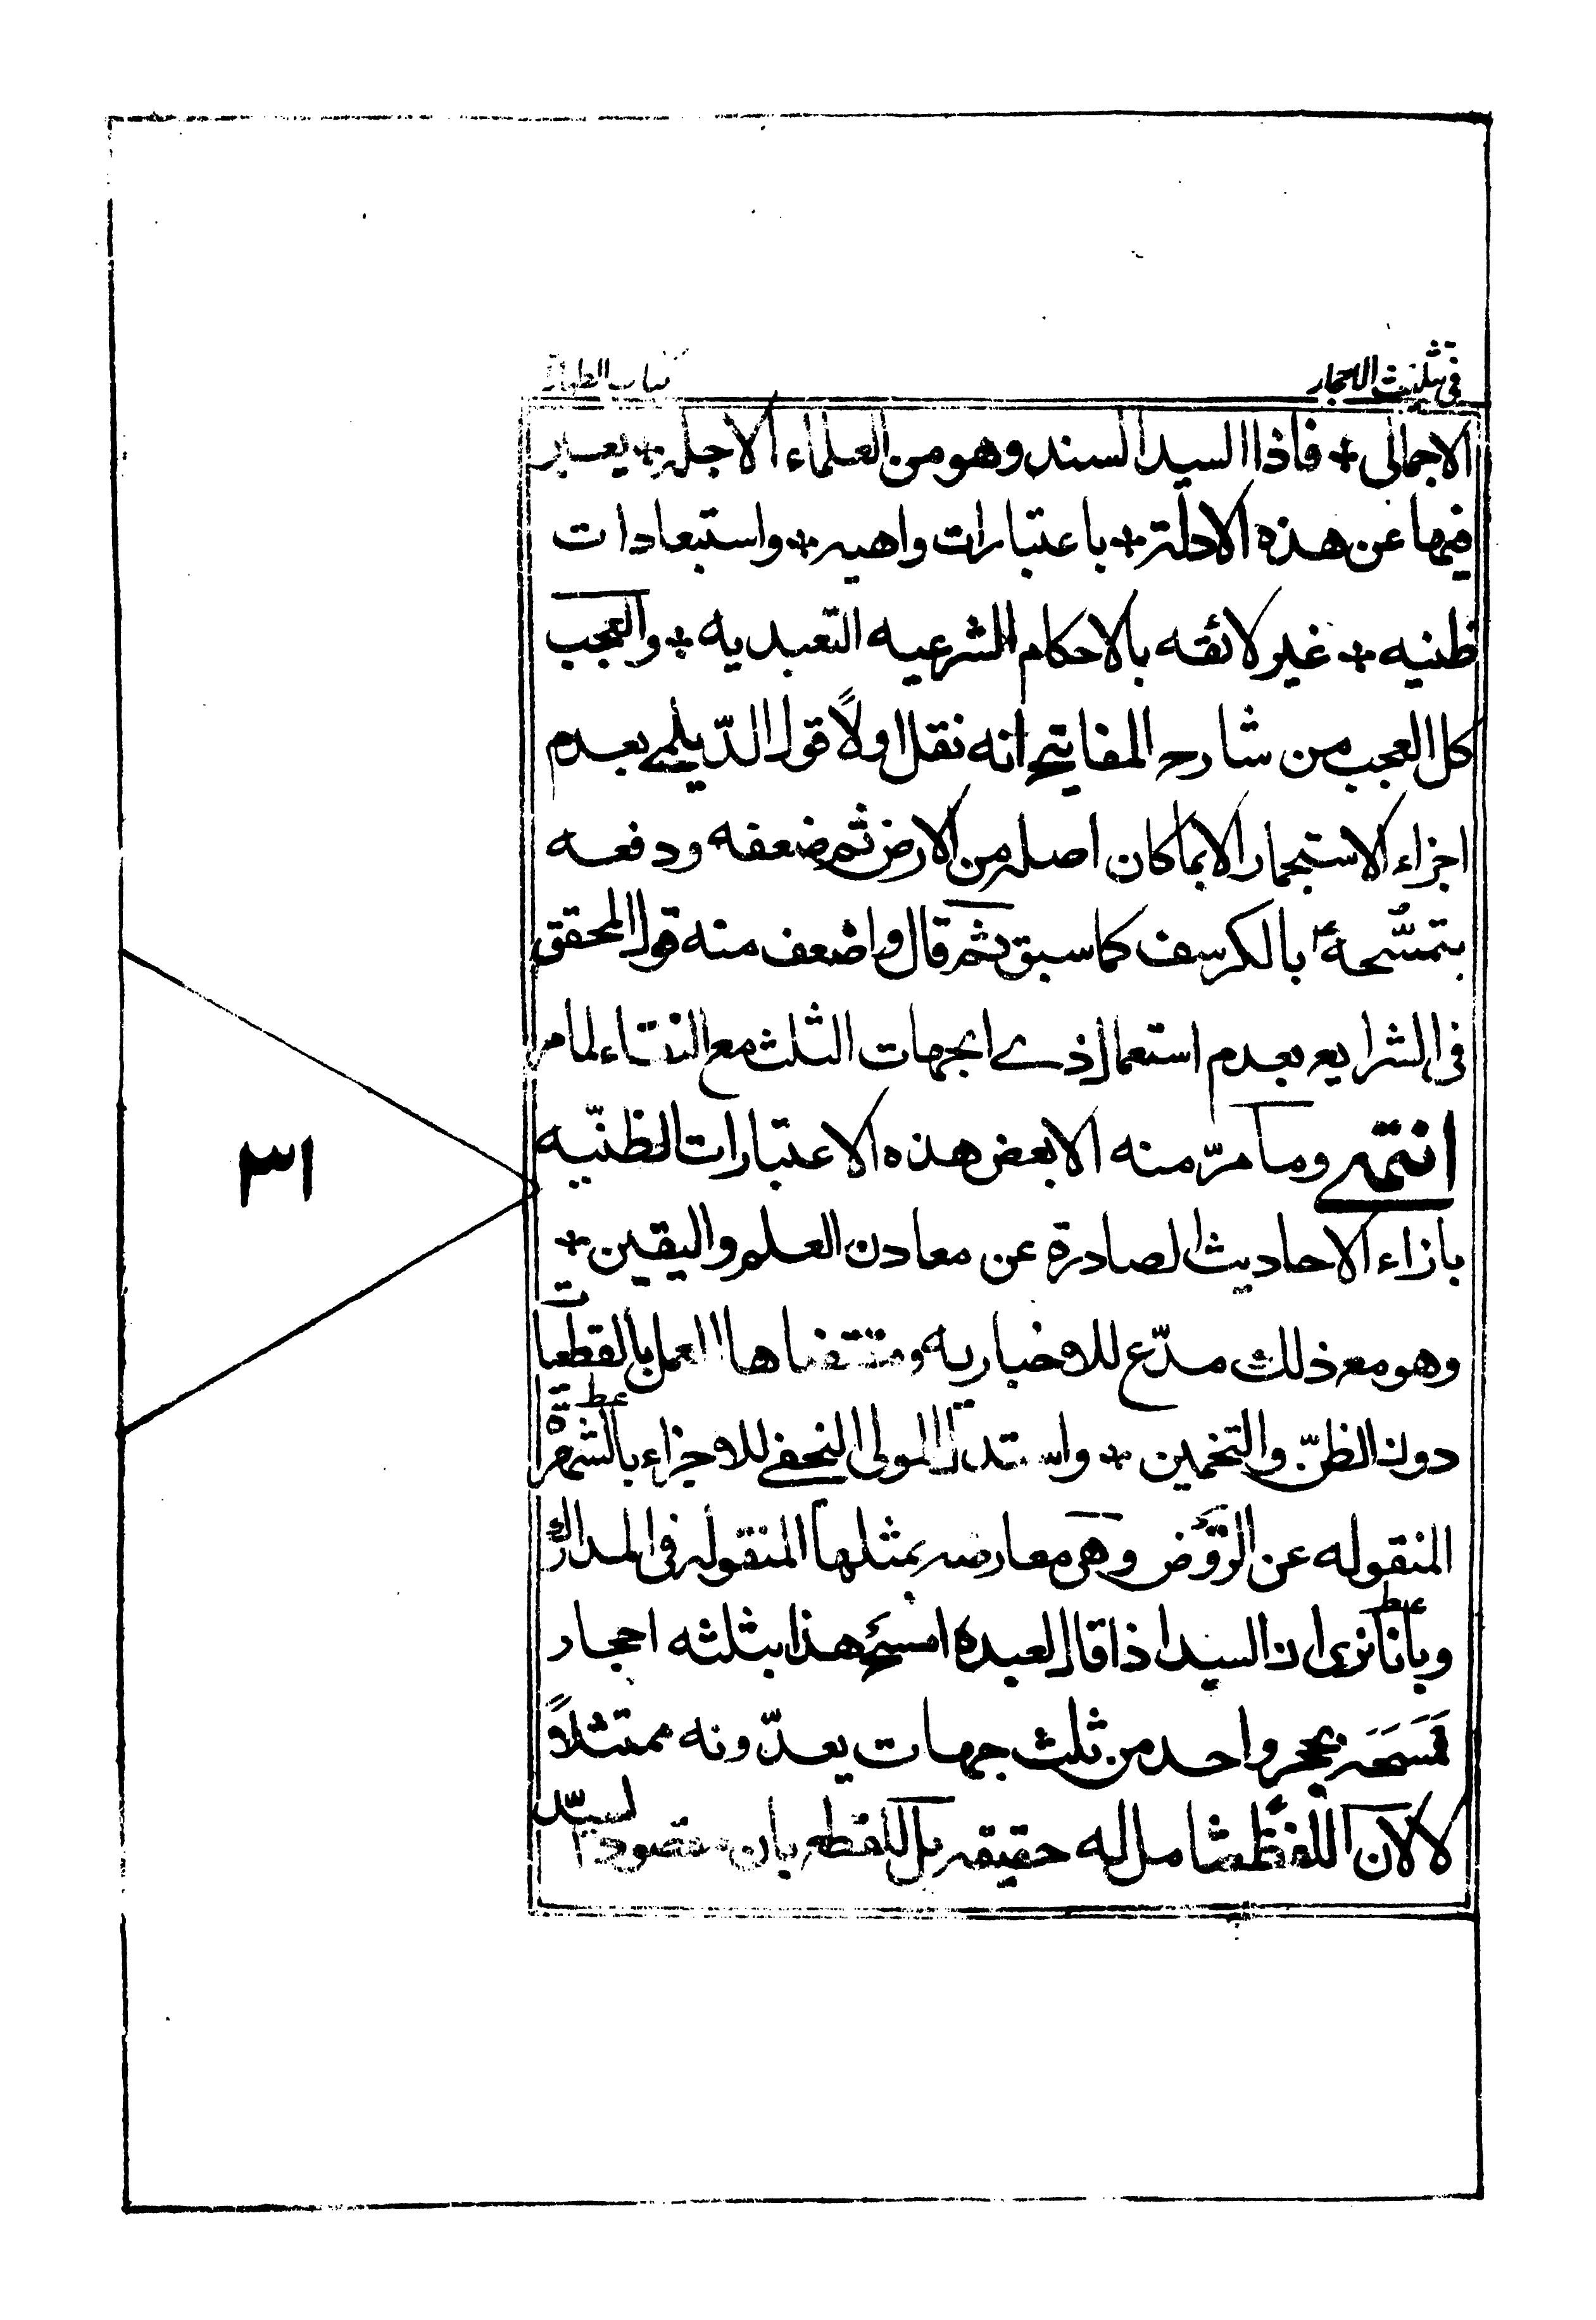 في تثليث الاحجار
كتاب الطهارة
الاجمالى * فاذا السيد السند وهو من العلماء الاجله * يعبر
فيها عن هذه الادلة * باعتبارات واهيه * واستبعادات
ظنيه * غير لائقه بالاحكام الشرعيه التعبديه * والعجب
كل العجب من شارح المفاتيح انه نقل اولاً قول الدّيلمي بعدم
اجزاء الاستجمار الا بما كان اصله من الارض ثم ضعفه ودفعه
بتمسّحه بالكرسف كما سبق ثم قال واضعف منه قول المحقق
فى الشرايع بعدم استعمال ذي الجهات الثلث مع النقاء لما مر
انتهى وما مرّ منه الا بعض هذه الاعتبارات الظنّيه
بازاء الاحاديث الصادرة عن معادن العلم واليقين *
وهو مع ذلك مدّع للاخباريه ومقتضاها العمل بالقطعيات
دون الظنّ والتخمين * واستدل المولى النجفي للاجزاء بالشهرة
المنقوله عن الرّوض وهى معارضه بمثلها المنقوله فى المدارك
وبانا نرى ان السيد اذا قال لعبده امسح هذا بثلثه احجار
فمسحه بحجر واحد من ثلث جهات يعدّونه ممتثلاً
لا لان اللفظ شامل له حقيقه بل للقطع بان مقصود السيّد
٣١